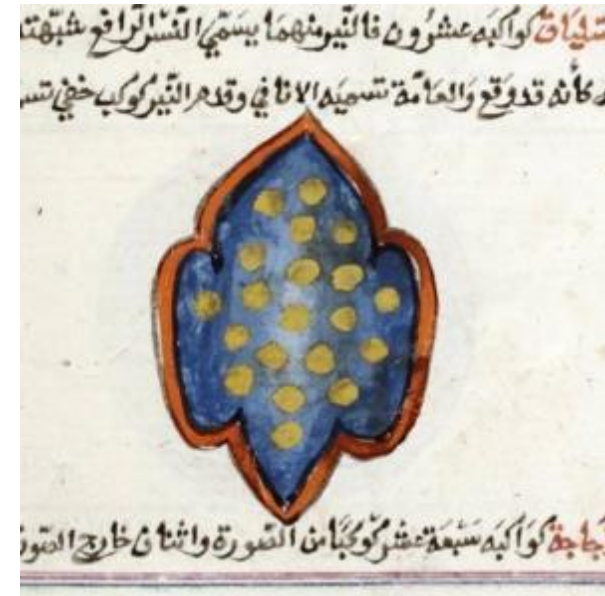 شلياق كواكبه عشرون فالنير منهما يسمي النسر الواقع شبهته
كأنه قد وقع والعامة تسميه الاثافي وقدم النير كوكب خفي
جاجة كواكبه سبعة عشر كوكبا من الصورة واثنان خارج الصور